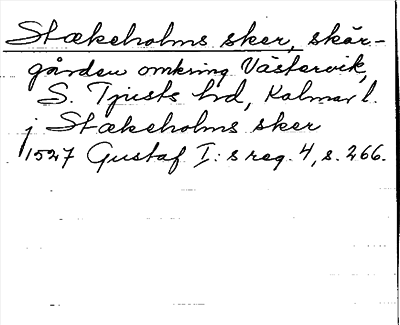 Stækeholms sker, skär-
gården omkring Västervik,
S. Tjusts hd, Kalmar l.
j Stækeholms sker
1527 Gustaf I: s reg. 4, s. 266.